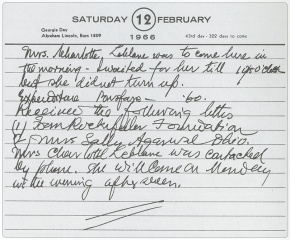 SATURDAY 12 FEBRUARY
Georgia Day
Abraham Lincoln, Born 1809
1966
43rd day - 322 days to come
Mrs. Charlotte Leblanc was to come here in
the morning. Awaited for her till 1 o'clock
but she did not turn up.
Expenditure Postage - '60.
Received the following letters
(1) From Rockefeller Foundation
(2) Mrs Sally Agarwal Ohio.
Mrs Charlotte Leblanc was contacted
by phone. She will come on Monday
in the evening after seven.